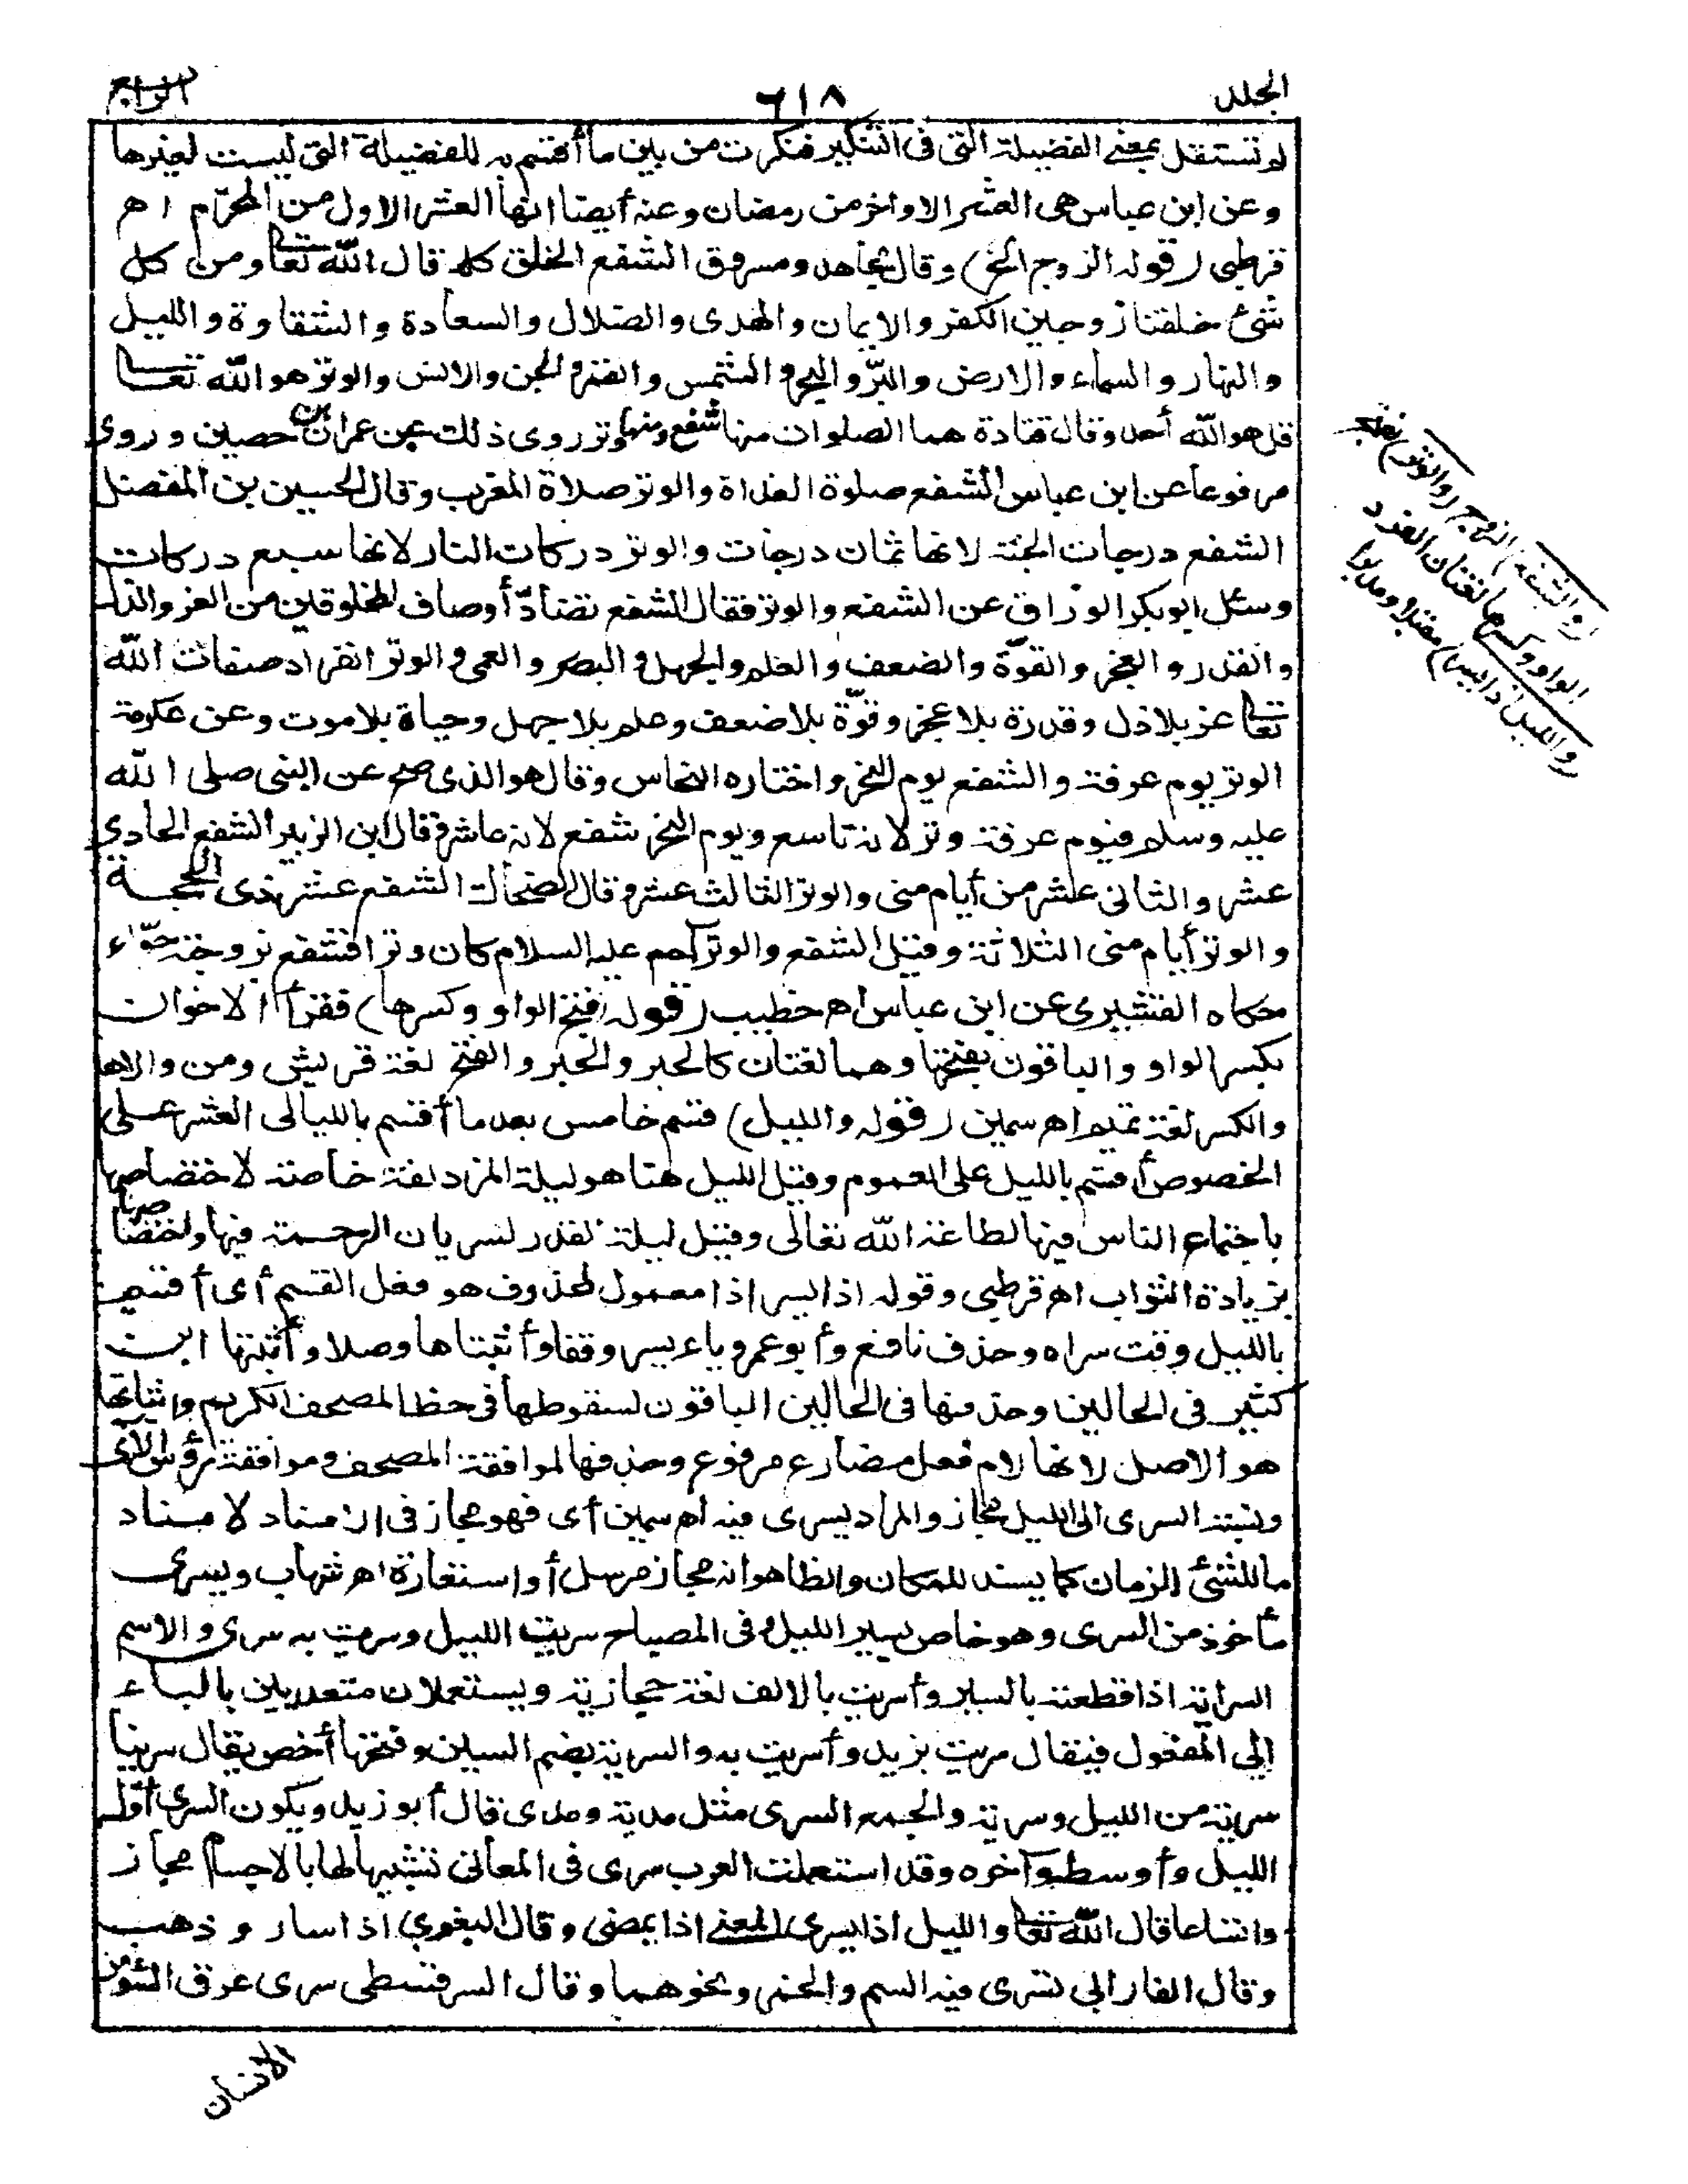 الجلد
٦١٨
الرابع
لم تستقل بمعنى الفضيلة التى فى التنكير فنكرت من بين ما أقسم به للفضيلة التى ليست لغيرها
وعن ابن عباس هى العشر الاواخر من رمضان وعنه أيضا انها العشر الاول من المحرّم اه
قرطبى (قوله الزوج الخ) وقال مجاهد ومسروق الشفع الخلق كله قال الله تعا ومن كل
شئ خلقنا زوجين الكفر والايمان والهدى والضلال والسعادة والشقاوة والليل
والنهار والسماء والارض والبرّ والبحر والشمس والقمر والجن والانس والوتر هو الله تعا
قل هو الله أحد وقال قتادة هما الصلوات منها شفع ومنها وتر روى ذلك عن عمران بن حصين وروى
مرفوعا عن ابن عباس الشفع صلوة الغداة والوتر صلاة المغرب وقال الحسين بن المفضل
الشفع درجات الجنة لانها ثمان درجات والوتر دركات النار لانها سبع دركات
وسئل ابو بكر الورّاق عن الشفع والوتر فقال الشفع تضادّ أوصاف المخلوقين من العز والذل
والقدر و العجز والقوّة والضعف والعلم والجهل والبصر والعمى والوتر انفراد صفات الله
تعا عز بلا ذل وقدرة بلا عجز وقوّة بلا ضعف وعلم بلا جهل وحياة بلا موت وعن عكرمة
الوتر يوم عرفة والشفع يوم النحر واختاره النحاس وقال هو الذى صح عن النبى صلى الله
عليه وسلم فيوم عرفة وتر لانه تاسع ويوم النحر شفع لانه عاشر وقال ابن الزبير الشفع الحادى
عشر والثانى عشر من أيام منى والوتر الثالث عشر وقال الضحاك الشفع عشر ذى الحجة
والوتر أيام منى الثلاثة وقيل الشفع والوتر آدم عليه السلام كان وترا فشفع بزوجته حوّاء
حكاه القشيرى عن ابن عباس اه خطيب (قوله بفتح الواو وكسرها) فقرأ الاخوان
بكسر الواو والباقون بفتحها وهما لغتان كالحبر والحبر والفتح لغة قريش ومن والاها
والكسر لغة تميم اه سمين (قوله والليل) قسم خامس بعد ما أقسم بالليالى العشر على
الخصوص أقسم بالليل على العموم وقيل الليل هنا هو ليلة المزدلفة خاصة لاختصاصها
باجتماع الناس فيها لطاعة الله تعالى وقيل ليلة القدر لسريان الرحمة فيها واختصاصها
بزيادة الثواب اه قرطبى وقوله اذا يسر اذا معمول لمحذوف هو فعل القسم أى أقسم
بالليل وقت سراه وحذف نافع وأبو عمرو ياء يسر وقفا وأثبتاها وصلا وأثبتها ابن
كثير فى الحالين وحذفها فى الحالين الباقون لسقوطها فى خط المصحف الكريم واثباتها
هو الاصل لانها لام فعل مضارع مرفوع وحذفها لموافقة المصحف وموافقة رؤس الآى
ونسبة السرى الى الليل مجاز والمراد يسرى فيه اه سمين أى فهو مجاز فى الاسناد لاسناد
ما للشئ للزمان كما يسند للمكان والظاهر انه مجاز مرسل أو استعارة اه شهاب ويسرى
مأخوذ من السرى وهو خاص بسير الليل وفى المصباح سريت الليل وسريت به سرى والاسم
السراية اذا قطعته بالسير وأسريت بالالف لغة حجازية ويستعملان متعديين بالباء
إلى المفعول فيقال سريت بزيد وأسريت به والسرية بضم السين وفتحها أخص يقال سرينا
سرية من الليل وسرية والجمع السرى مثل مدية ومدى قال أبو زيد ويكون السرى أوّل
الليل وأوسطه وآخره وقد استعملت العرب سرى فى المعانى تشبيها لها بالاجسام مجازا
واتساعا قال الله تعا والليل اذا يسرى المعنى اذا يمضى وقال البغوى اذا سار وذهب
وقال الفارابى سرى فيه السم والخمر ونحوهما وقال السرقسطى سرى عرق السوء من
الانسان
(والشفع) الزوج (والوتر) بفتح
الواو وكسرها لغتان الفرد
(والليل اذا يسر) مقبلا ومدبرا